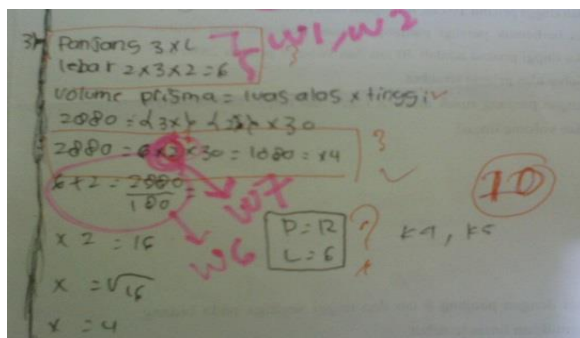 3) Panjang 3 x L ] W1, W2
lebar 2 x 3 x 2 = 6 ?
Volume prisma = luas alas x tinggi
2880 = (3x) (2x) x 30
2880 = 6x2 x 30 = 1080 = x4 ?
6 + 2 = 2880/180 = W7
W6
10
x 2 = 16
P = 12
L = 6
? K4, K5
x = √16
x = 4